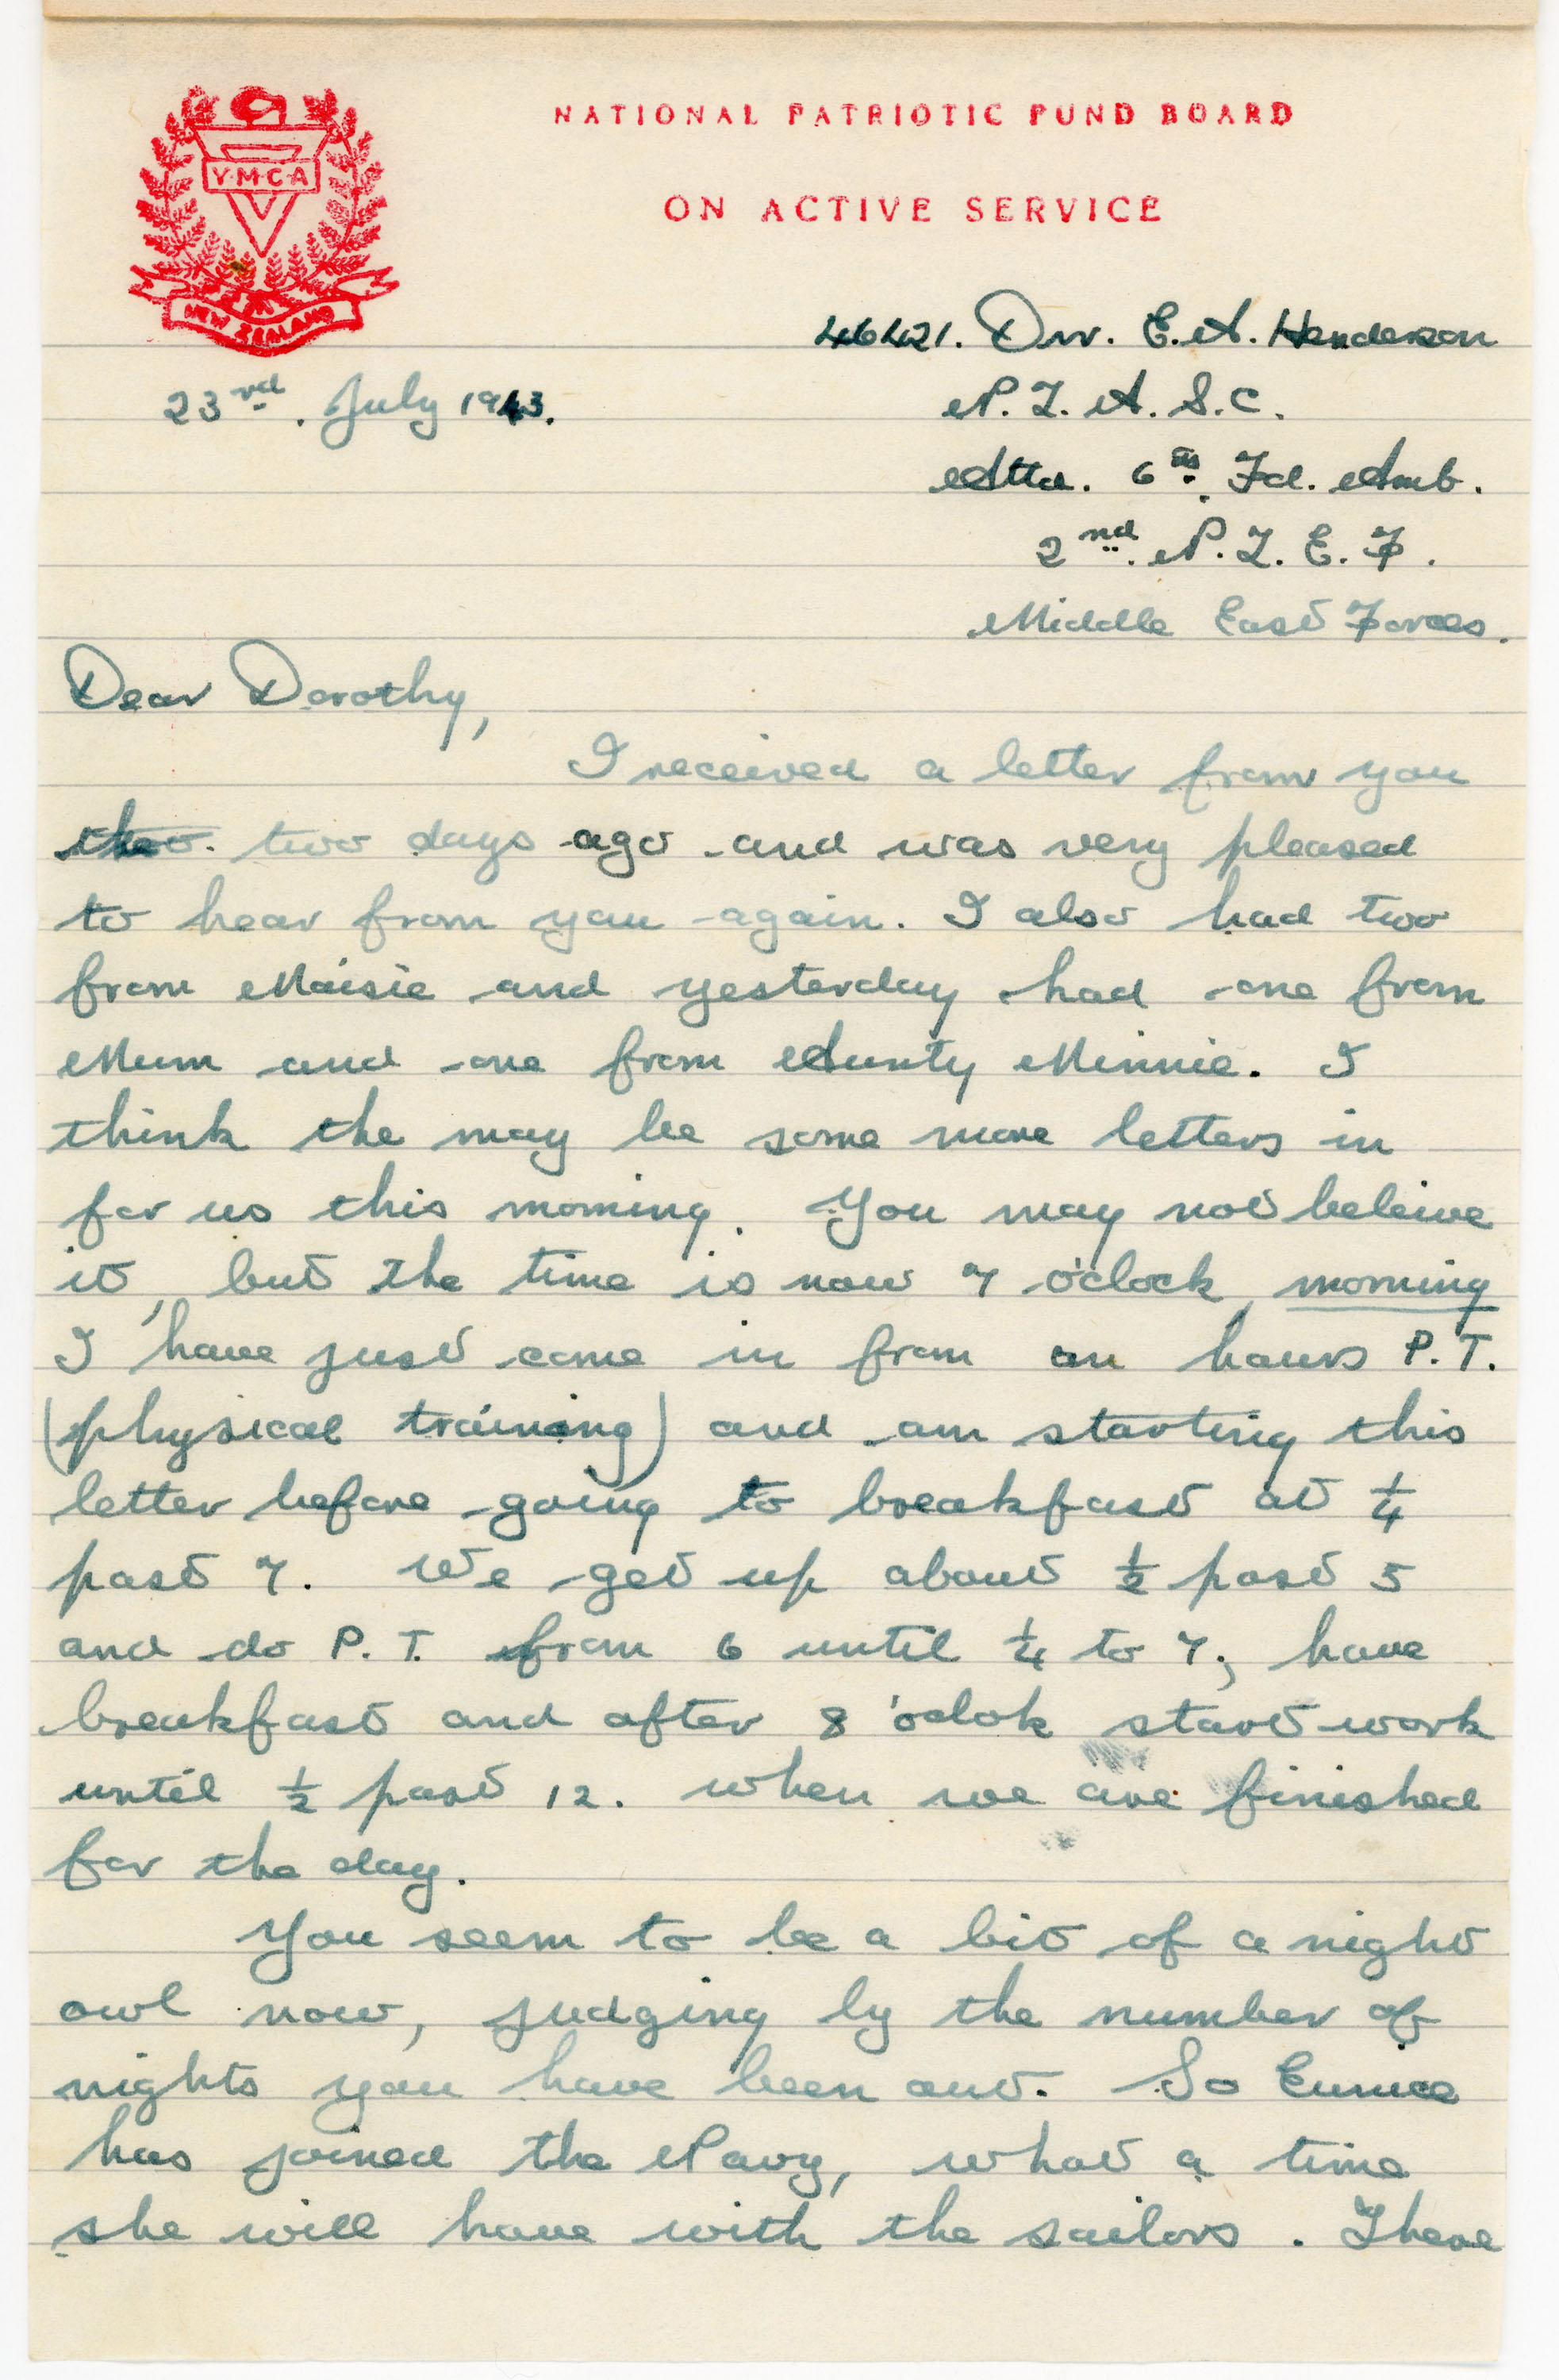 NATIONAL PATRIOTIC FUND BOARD
Y·M·C·A
ON ACTIVE SERVICE
NEW ZEALAND
46421. Dvr. E.A. Henderson
23rd. July 1943.
N.Z.A.S.C.
Attd. 6th. Fd. Amb.
2nd. N.Z.E.F.
Middle East Forces.
Dear Dorothy,
I received a letter from you
two days ago and was very pleased
to hear from you again. I also had two
from Maisie and yesterday had one from
Mum and one from Aunty Minnie. I
think the may be some more letters in
for us this morning. You may not beleive
it, but the time is now 7 o'clock, morning
I have just come in from an hours P.T.
(physical training) and am starting this
letter before going to breakfast at 1/4
past 7. We get up about 1/2 past 5
and do P.T. from 6 until 1/4 to 7, have
breakfast and after 8 'oclok start work
until 1/2 past 12. when we are finished
for the day.
You seem to be a bit of a night
owl now, judging by the number of
nights you have been out. So Eunice
has joined the Navy, what a time
she will have with the sailors. There